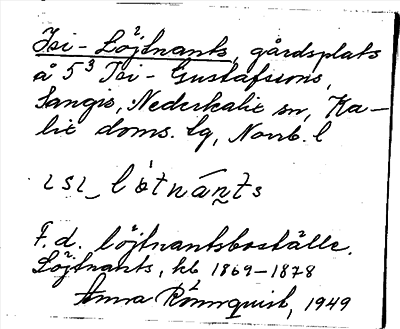 Isi-Löjtnants, gårdsplats
å 5³ Isi-Gustafsons,
Sangis, Nederkalix sn, Ka-
lix doms. lg, Norrb. l
ɩsɩ_lö̀tnán̰ts
F.d. löjtnantsboställe.
Löjtnants, kb 1869-1878
Anna Rönnquist, 1949